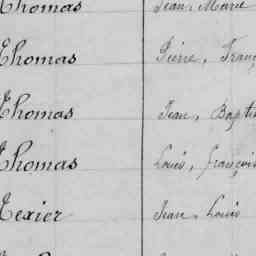 Thomas Jean, Marie
Thomas Pierre, Franç
Thomas Jean, Baptis
Thomas Louis, françois
Texier Jean, Louis